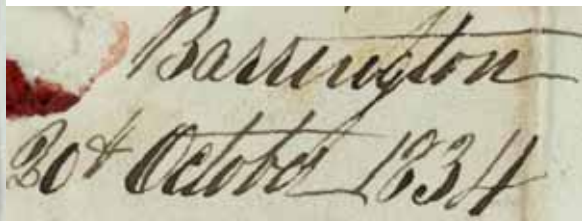 Barrington
20t October 1834